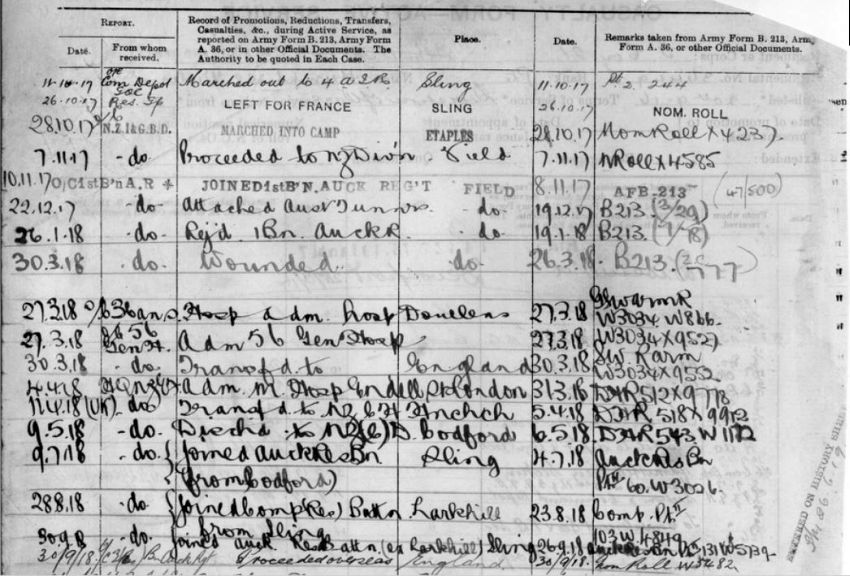 REPORT.
Record of Promotions, Reductions, Transfers,
Casualties, &c., during Active Service, as
reported on Army Form B. 213, Army Form
A. 36, or in other Official Documents. The
Authority to be quoted in Each Case.
Place.
Date.
Remarks taken from Army Form B. 213, Army
Form A. 36, or other Official Documents.
Date.
From whom
received.
11.10.17 Com Depot Marched out to 4 Sling 11.10.17 Pt 2. 244
26.10.17 Res. Gp LEFT FOR FRANCE SLING 26.10.17 NOM. ROLL
28.10.17 N.Z.I&G.B.D. MARCHED INTO CAMP ETAPLES 28.10.17 Nom Roll X 4237.
7.11.17 -do- Proceeded to NZ Div'n Field 7.11.17 NRoll X 4585
10.11.17 O/C 1st B'n A.R JOINED 1st B'N. AUCK REG'T FIELD 8.11.17 AFB-213 (47/500)
22.12.17 -do- Attached Aust Tunnrs. -do- 19.12.17 B213.
26.1.18 -do. Rej'd 1 Bn. Auck R. -do. 19.1.18 B213.
30.3.18 do. Wounded. do. 26.3.18. B213.
27.3.18 Hosp adm. hosp Doullens 27.3.18 W3034. W866.
27.3.18 56 Gen H. Adm 56 Gen Hosp 27.3.18 W3034 X 9527
30.3.18 -do. Transf'd to England 30.3.18 W3034 X 9552
4.4.18 Adm. M. Hosp Endell St London 31.3.18 DAR 512 X 9778
11.4.18 (UK) -do. Transf'd to NZ 5.4.18 DAR 518 X 9912
9.5.18 -do. Disch'd to NZ D. Codford 6.5.18 DAR 543 W 1172
9.7.18 -do. Joined Auck Res Bn Sling 4.7.18 Auck Res Bn
(from Codford) Pt II 60. W3026.
28.8.18 -do {Joined Comp (Res) Battn Larkhill 23.8.18 Comp. Pt II
from Sling 103 W 4849
-do. Joined Auck Res Battn. (ex Larkhill) Sling 26.9.18
30/9/18. Proceeded overseas England 30/9/18. Nom Roll W 5482